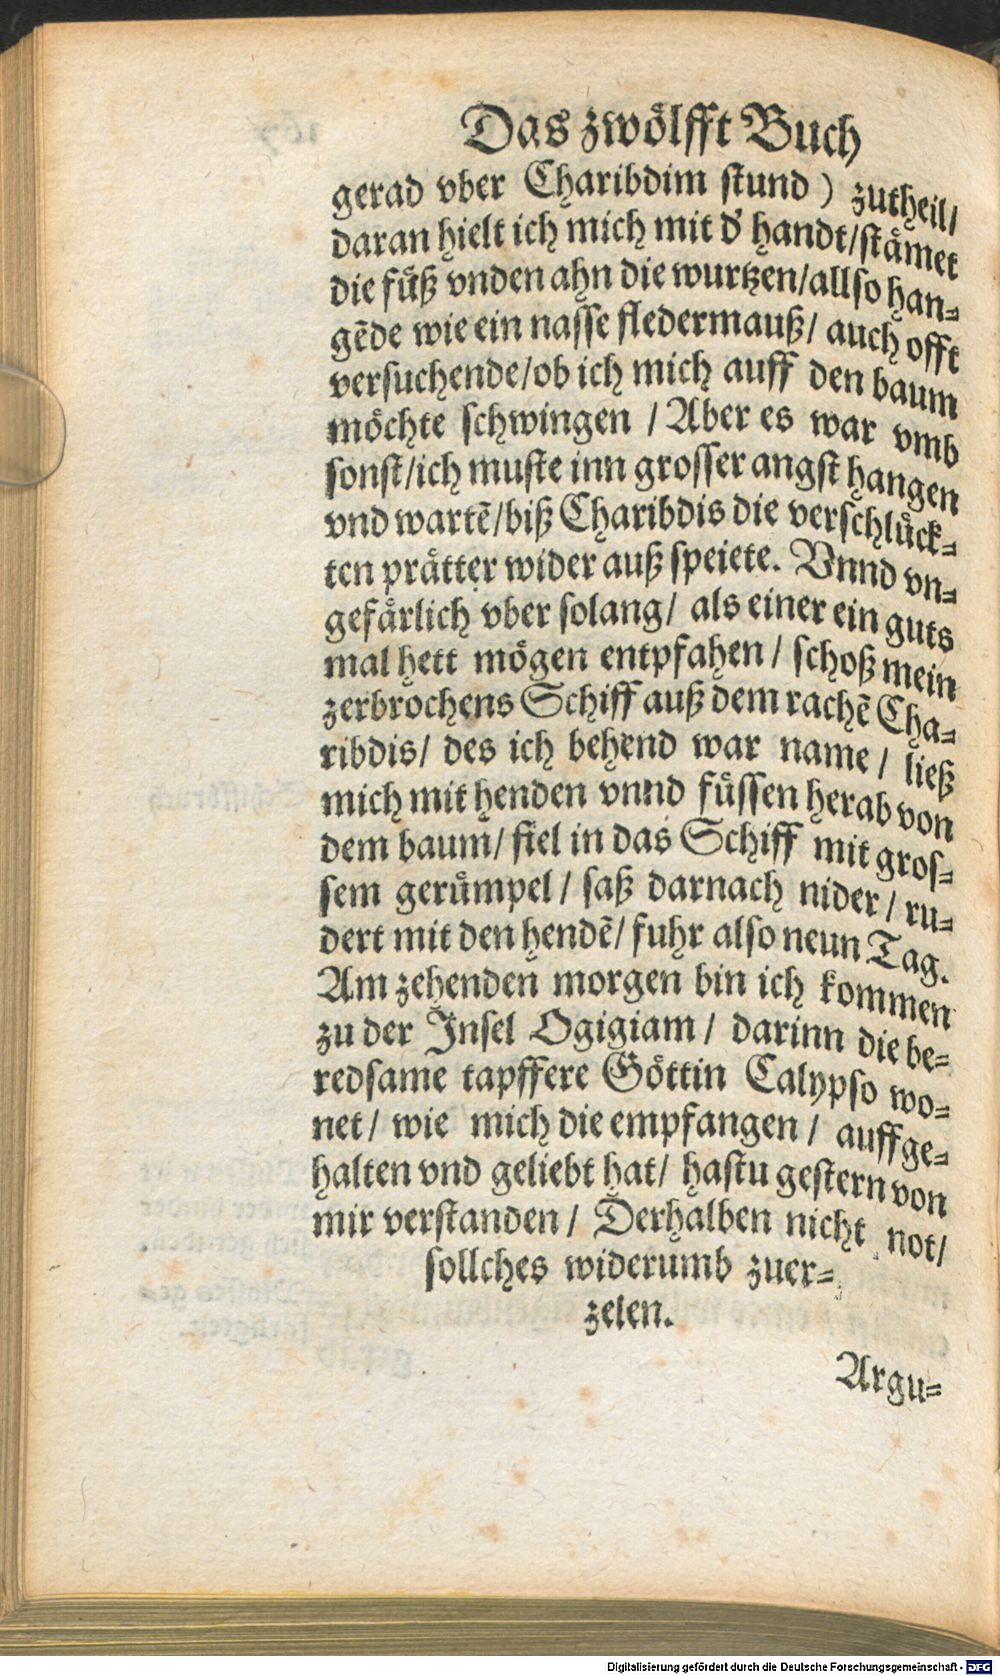 Das zwoͤlfft Buch
gerad vber Charibdim stund) zutheil/
daran hielt ich mich mit d' handt/staͤmet
die fuͤß vnden ahn die wurtzen/allso han⸗
gẽde wie ein nasse fledermauß/ auch offt
versuchende/ob ich mich auff den baum
moͤchte schwingen / Aber es war vmb
sonst/ich muste inn grosser angst hangen
vnd wartẽ/biß Charibdis die verschluͤck⸗
ten praͤtter wider auß speiete. Vnnd vn⸗
gefaͤrlich vber solang/ als einer ein guts
mal hett moͤgen entpfahen/ schoß mein
zerbrochens Schiff auß dem rachẽ Cha⸗
ribdis/ des ich behend war name/ ließ
mich mit henden vnnd fuͤssen herab von
dem baum/ fiel in das Schiff mit gros⸗
sem geruͤmpel/ saß darnach nider/ ru⸗
dert mit den hendẽ/ fuhr also neun Tag.
Am zehenden morgen bin ich kommen
zu der Insel Ogigiam/ darinn die be⸗
redsame tapffere Goͤttin Calypso wo⸗
net/ wie mich die empfangen/ auffge⸗
halten vnd geliebt hat/ hastu gestern von
mir verstanden/ Derhalben nicht not/
sollches widerumb zuer⸗
zelen.
Argu⸗
Digitalisierung gefördert durch die Deutsche Forschungsgemeinschaft - DFG